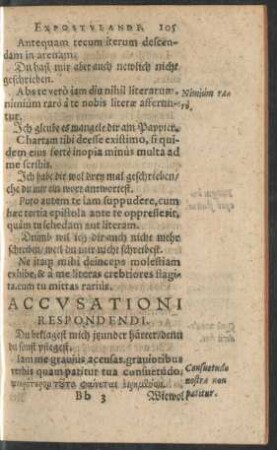 EXPOSTVLANDI. 105
Antequam tecum iterum descen-
dam in arenam.
Du hast mir aber auch newlich nicht
geschrieben.
Abs te verò iam diu nihil literarum:
nimium rarò à te nobis literæ afferun-
tur.
Nimium ra-
rò.
Ich gleube es mangele dir am Pappier.
Chartam tibi deesse existimo, si quidem
eius fortè inopia minus multa ad
me scribis.
Ich habe dir wol drey mal geschrieben/
ehe du mir ein wort antwortest.
Puto autem te iam suppudere, cum
hæc tertia epistola ante te oppresserit,
quàm tu schedam aut literam.
Drumb wil ich dir auch nicht mehr
schreiben/ weil du mir nicht schreibest.
Ne itaq; mihi deinceps molestiam
exhibe, & à me literas crebriores flagi-
ta, cum tu mittas rarius.
ACCVSATIONI
RESPONDENDI.
Du beklagest mich jtzunder härter/ denn
du sonst pflegest.
Iam me grauius accusas, grauioribus
verbis quàm patitur tua consuetudo.
Consuetudo
nostra non
patitur.
Bb 3 Wiewol